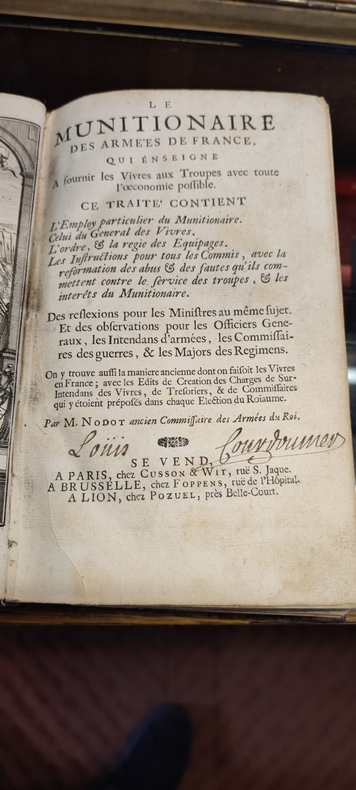 LE
MUNITIONAIRE
DES ARMÉES DE FRANCE,
QUI ENSEIGNE
A fournir les Vivres aux Troupes avec toute
l'œconomie possible.
CE TRAITE' CONTIENT
L'Employ particulier du Munitionaire.
Celui du General des Vivres.
L'ordre, & la regie des Equipages.
Les Instructions pour tous les Commis, avec la
reformation des abus & des fautes qu'ils com-
mettent contre le service des troupes, & les
interêts du Munitionaire.
Des reflexions pour les Ministres au même sujet.
Et des observations pour les Officiers Gene-
raux, les Intendans d'armées, les Commissai-
res des guerres, & les Majors des Regimens.
On y trouve aussi la maniere ancienne dont on faisoit les Vivres
en France; avec les Edits de Creation des Charges de Sur-
Intendans des Vivres, de Tresoriers, & de Commissaires
qui y étoient préposés dans chaque Election du Roiaume.
Par M. NODOT ancien Commissaire des Armées du Roi.
Louis Courdoumer
SE VEND,
A PARIS, chez CUSSON & WIT, ruë S. Jaque.
A BRUSSELLE, chez FOPPENS, ruë de l'Hôpital.
A LION, chez POZUEL, près Belle-Court.